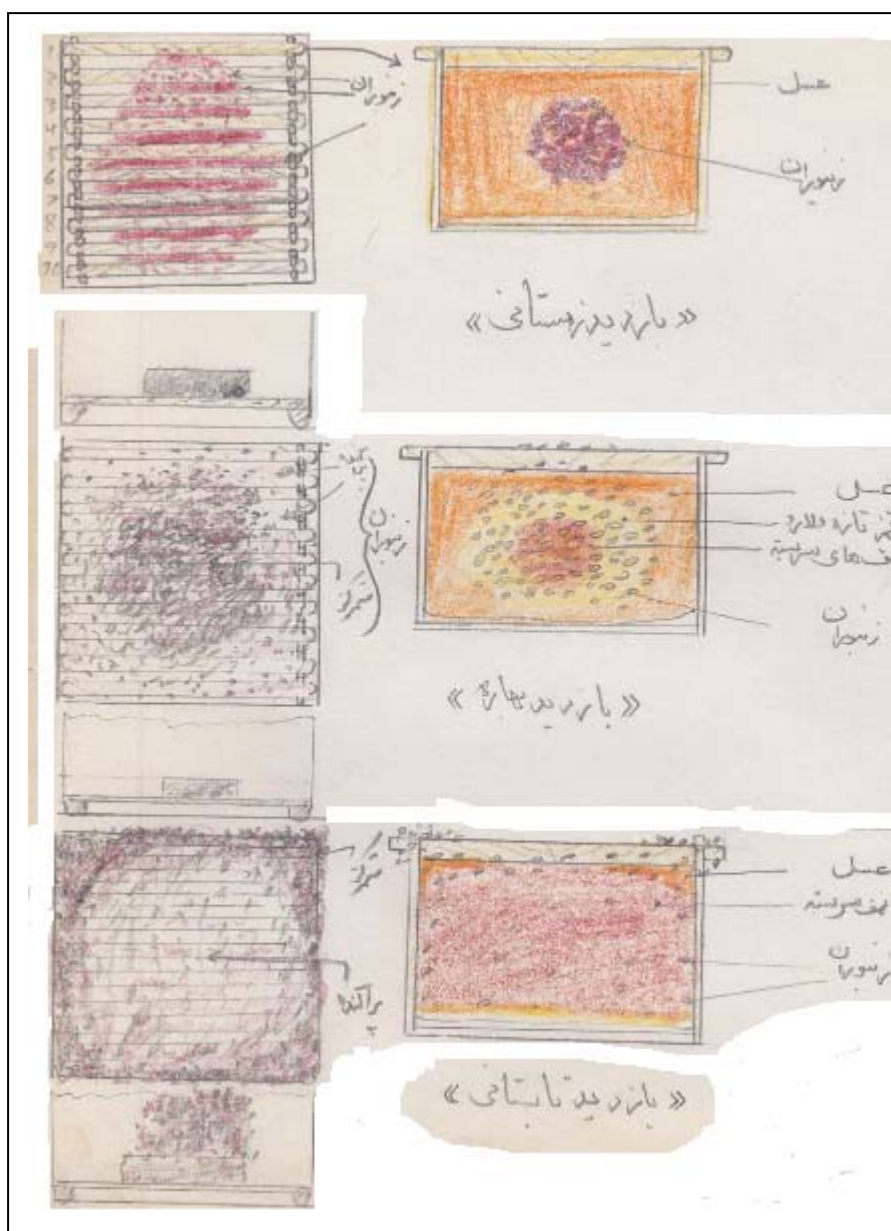 1
2
3
4
5
6
7
8
9
10
زنبوران
عسل
زنبوران
«بازدید زمستانی»
زنبوران
متمرکز
عسل
تازه
های سربسته
زنبوران
«بازدید بهاره»
متمرکز
پراکنده
عسل
سربسته
زنبوران
«بازدید تابستانی»